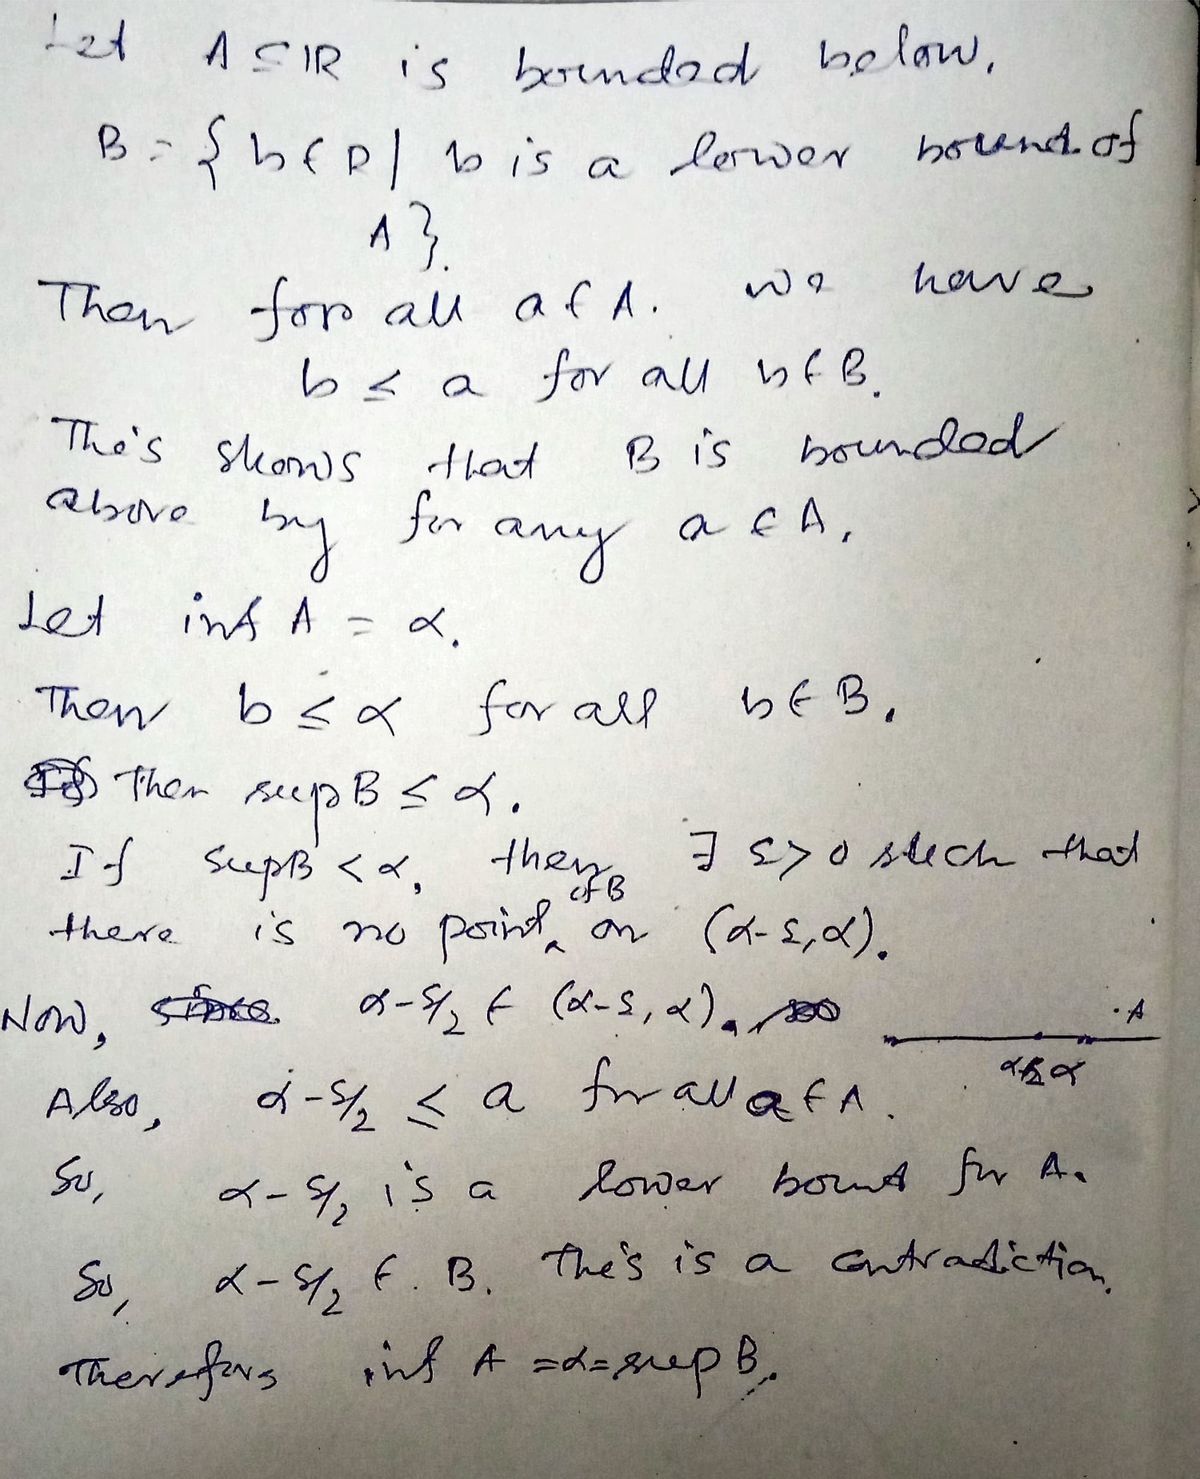 Let A ⊆ IR is bounded below,
B = { b ∈ R | b is a lower bound of
A }.
Then for all a ∈ A. we have
b ≤ a for all b ∈ B.
This shows that B is bounded
above by for any a ∈ A,
Let inf A = α.
Then b ≤ α for all b ∈ B.
Then sup B ≤ α.
If sup B < α, then ∃ ε > 0 such that
there is no point of B on (α-ε, α).
Now, α-ε/2 ∈ (α-ε, α).
· A
α
Also, α-ε/2 ≤ a for all a ∈ A.
So, α-ε/2 is a lower bound for A.
So, α-ε/2 ∈. B. This is a contradiction.
Therefore inf A = α = sup B.